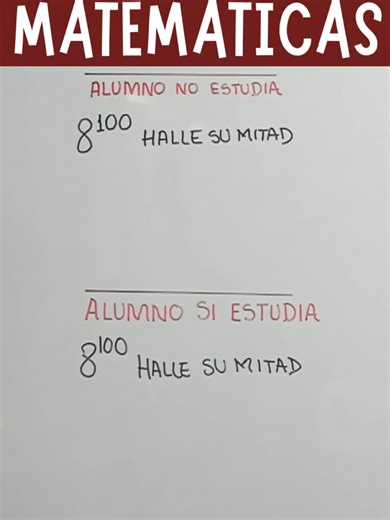 MATEMATICAS
ALUMNO NO ESTUDIA
8¹⁰⁰ HALLE SU MITAD
ALUMNO SI ESTUDIA
8¹⁰⁰ HALLE SU MITAD